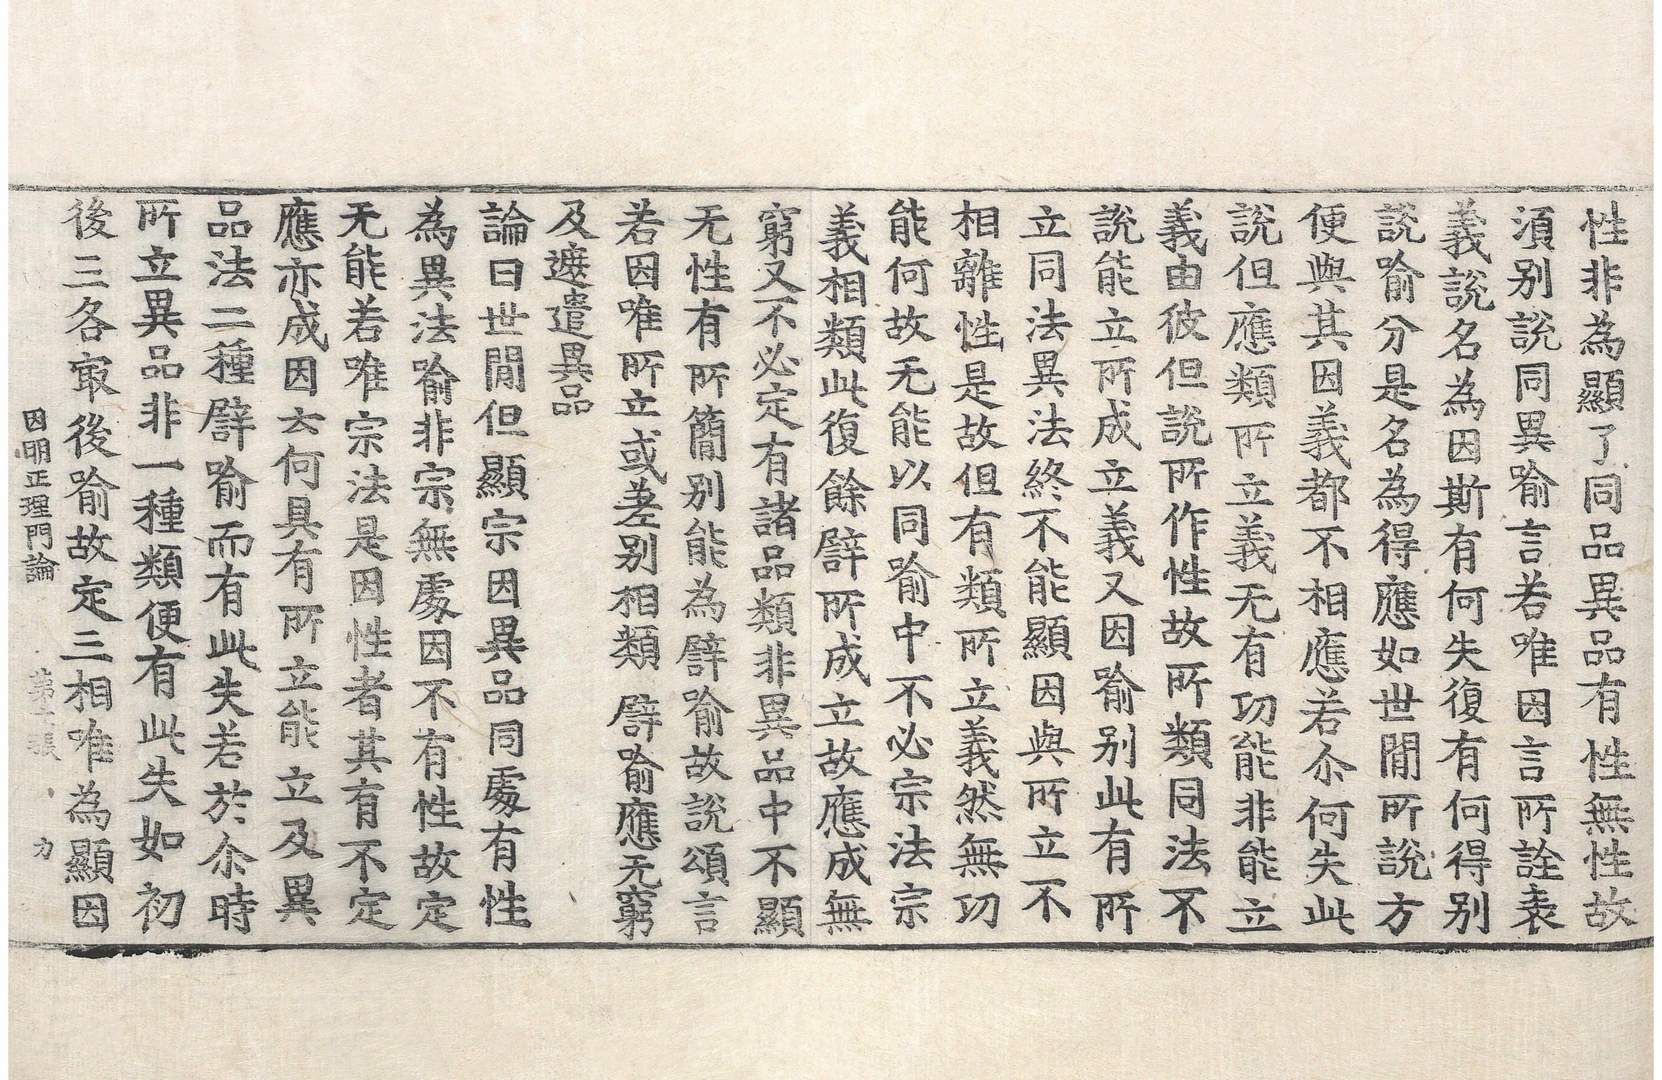 性非為顯了同品異品有性無性故
湏別說同異喻言若唯因言所詮表
義說名為因斯有何失復有何得別
說喻分是名為得應如世間所說方
便與其因義都不相應若尒何失此
說但應類所立義无有功能非能立
義由彼但說所作性故所類同法不
說能立所成立義又因喻別此有所
立同法異法終不能顯因與所立不
相離性是故但有類所立義然無功
能何故无能以同喻中不必宗法宗
義相類此復餘譬所成立故應成無
窮又不必定有諸品類非異品中不顯
无性有所簡別能為譬喻故說頌言
若因唯所立或差別相類 譬喻應无窮
及遮遣異品
論曰世間但顯宗因異品同處有性
為異法喻非宗無處因不有性故定
无能若唯宗法是因性者其有不定
應亦成因云何具有所立能立及異
品法二種譬喻而有此失若於尒時
所立異品非一種類便有此失如初
後三各冣後喻故定三相唯為顯因
因明正理門論 第 張 力